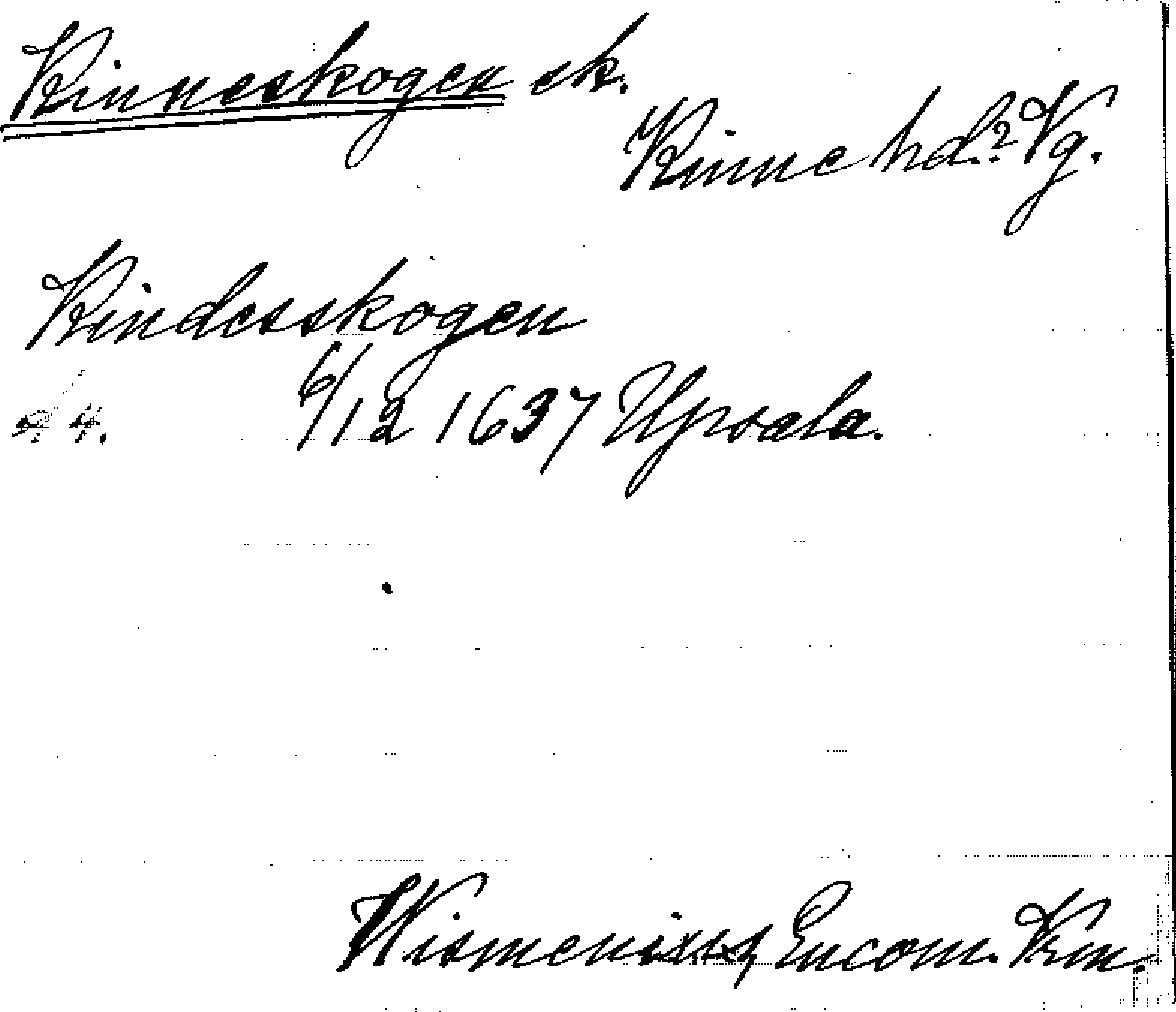 Kinneskogen sk.
Kinne hd.? Vg.
Kindesskogen
s 4. 6/12 1637 Upsala.
Wismenius, Encom. Kin.